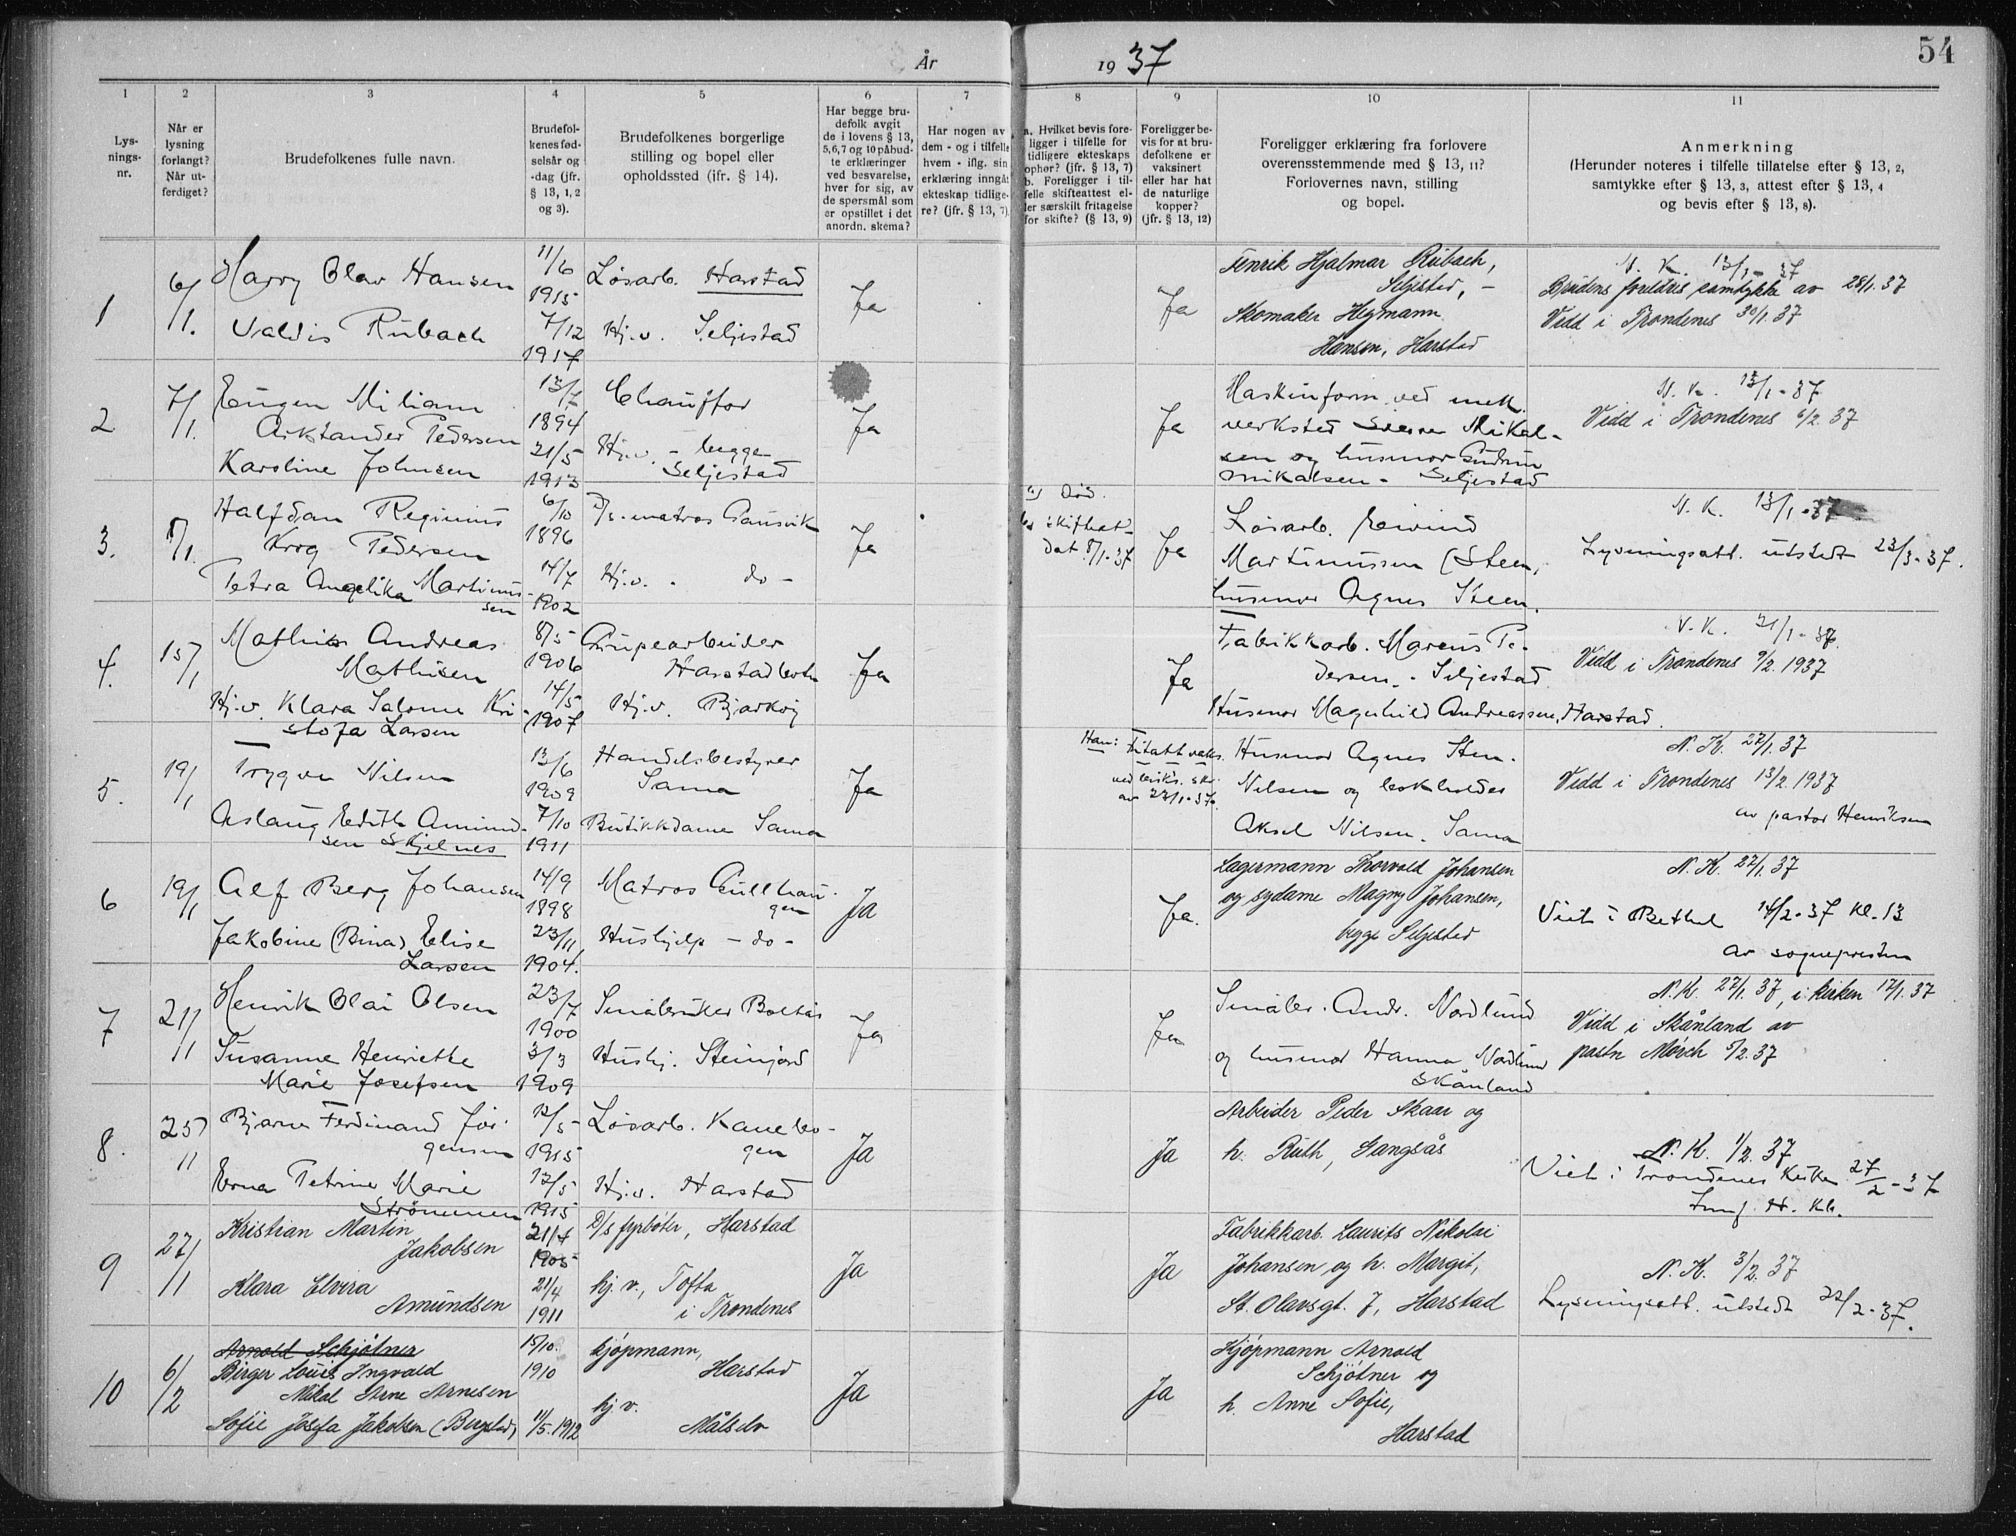 År 1937
54
1 2 3 4 5 6 7 8 9 10 11
Lys-
nings-
nr.
Når er
lysning
forlangt?
Når ut-
ferdiget?
Brudefolkenes fulle navn.
Brudefol-
kenes fød-
selsår og
-dag (jfr.
§ 13, 1, 2
og 3).
Brudefolkenes borgerlige
stilling og bopel eller
opholdssted (ifr. § 14).
Har begge bru-
defolk avgit
de i lovens § 13,
5,6,7 og 10 påbud-
te erklæringer
ved besvarelse,
hver for sig, av
de spørsmål som
er opstillet i det
anordn. skema?
Har nogen av
dem - og i tilfelle
hvem - iflg. sin
erklæring inngåt
ekteskap tidlige-
re? (jfr. § 13, 7)
a. Hvilket bevis fore-
ligger i tilfelle for
tidligere ekteskaps
ophør? (jfr. § 13, 7)
b. Foreligger i til-
felle skifteattest el-
ler særskilt fritagelse
for skifte? (§ 13, 9)
Foreligger be-
vis for at bru-
defolkene er
vaksinert
eller har hat
de naturlige
kopper?
(jfr. § 13, 12)
Foreligger erklæring fra forlovere
overensstemmende med § 13, 11?
Forlovernes navn, stilling
og bopel.
Anmerkning
(Herunder noteres i tilfelle tillatelse efter § 13, 2,
samtykke efter § 13, 3, attest efter § 13, 4
og bevis efter § 13, 8).
1
6/1.
Harry Olav Hansen
11/6
1915
Løsarb. Harstad
Valdis Rubach
7/12
1917
Hj.v. Seljestad
Ja
Ja
Fenrik Hjalmar Rubach,
Seljestad, -
Skomaker Hegmann
Hansen, Harstad
N. K. 13/1 - 37
Brudens foreldres samtykke av 28/1. 37
Vidd i Trondenes 30/1. 37
2
7/1.
Eugen Miliam
Arktander Pedersen
13/7
1894
Chauffør
Karoline Johnsen
21/5
1913
Hj.v. - begge
Seljestad
Ja
Ja
Maskinform. ved mek.
verksted Mikal-
sen og husmor Gudrun
Mikalsen - Seljestad
N. K. 13/1 - 37
Vidd i Trondenes 6/2. 37
3.
8/1.
Halfdan Reginius
Krog Pedersen
6/10
1896
D/s. matros Gansvik
Petra Angelika Martinus-
sen
14/7
1902
Hj.v. - do -
Ja
a) død.
b) skifteat-
dat 8/1-37
Ja
Løsarb. Eivind
Martinussen (Steen,
husmor Agnes Steen.
N. K. 13/1 - 37
Lysningsatt. utstedt 23/3 - 37.
4.
15/1
Mathias Andreas
Mathisen
8/5
1906
Grupearbeider
Harstadbotn
Hj.v. Klara Salome Kri-
stofa Larsen
14/5
1907
Hj.v. Bjarkøy
Ja
Ja
Fabrikkarb. Marcus Pe-
dersen - Seljestad
Husmor Magnhild Andreassen, Harstad.
N. K. 21/1 - 37.
Vidd i Trondenes 9/2. 1937
5.
19/1
Trygve Nilsen
13/6
1909
Handelsbestyrer
Sama
Aslaug Edith Amund-
sen Skjelnes
7/10
1911
Butikkdame Sama
Ja
Han:
av 23/1-37.
Husmor Agnes Sten-
Nilsen og
Aksel Nilsen. Sama
N. K. 27/1. 37
Vidd i Trondenes 13/2. 1937
av pastor Henriksen
6
19/1
Alf Berg Johansen
14/9
1898
Matros Gullhau-
gen
Jakobine (Bina) Elise
Larsen
23/11
1904.
Hushjelp - do -
Ja
Ja.
Lagermann Thorvald Johansen
og sydame Magny Johansen,
begge Seljestad
N. K. 27/1. 37
Viet i Bethel 14/2 - 37 kl. 13
av sogneprestn
7
21/1
Henrik Olai Olsen
23/7
1900
Småbruker Boltås
Susanne Henriette
Marie Josefsen
3/3
1909
Hushj. Steinjord
Ja
Ja
Småbr. Andr. Nordlund
og husmor Hanna Nordlund
Skånland
N. K. 27/1. 37, i kirken 17/1. 37
Vidd i Skånland av
pastn Mørch 5/2. 37
8.
25/1
Bjarne Ferdinand Jør-
gensen
12/5
1915
Løsarb. Kanebo-
gen
Erna Petrine Marie
Strømmen
12/5
1915
Hj.v. Harstad
Ja
Ja
Arbeider Peder Skaar og
h. Ruth, Gangsås
N. K. 1/2. 37
Viet i Trondenes Kirke 27/2 - 37
H. Kl.
9
27/1
Kristian Martin
Jakobsen
21/4
1905
D/s fyrbøter, Harstad
Klara Elvira
Amundsen
21/4
1911
hj. v., Tofta
i Trondenes
Ja
Ja
Fabrikkarb. Laurits Nikolai
Johansen og h. Margit,
St. Olavsgt. 7, Harstad
N. K. 3/2. 37
Lysningsatt. utstedt 22/2 - 37.
10
6/2
Arnold Schjøtner
Birger Louis Ingvald
Nikal Arne Arnesen
15/10.
1910
kjøpmann,
Harstad
Sofie Josefa Jakobsen (Bergstad)
11/5. 1912
hj. v.
Målselv
Ja
Ja
Kjøpmann Arnold
Schjøtner og
h. Anne Sofie,
Harstad